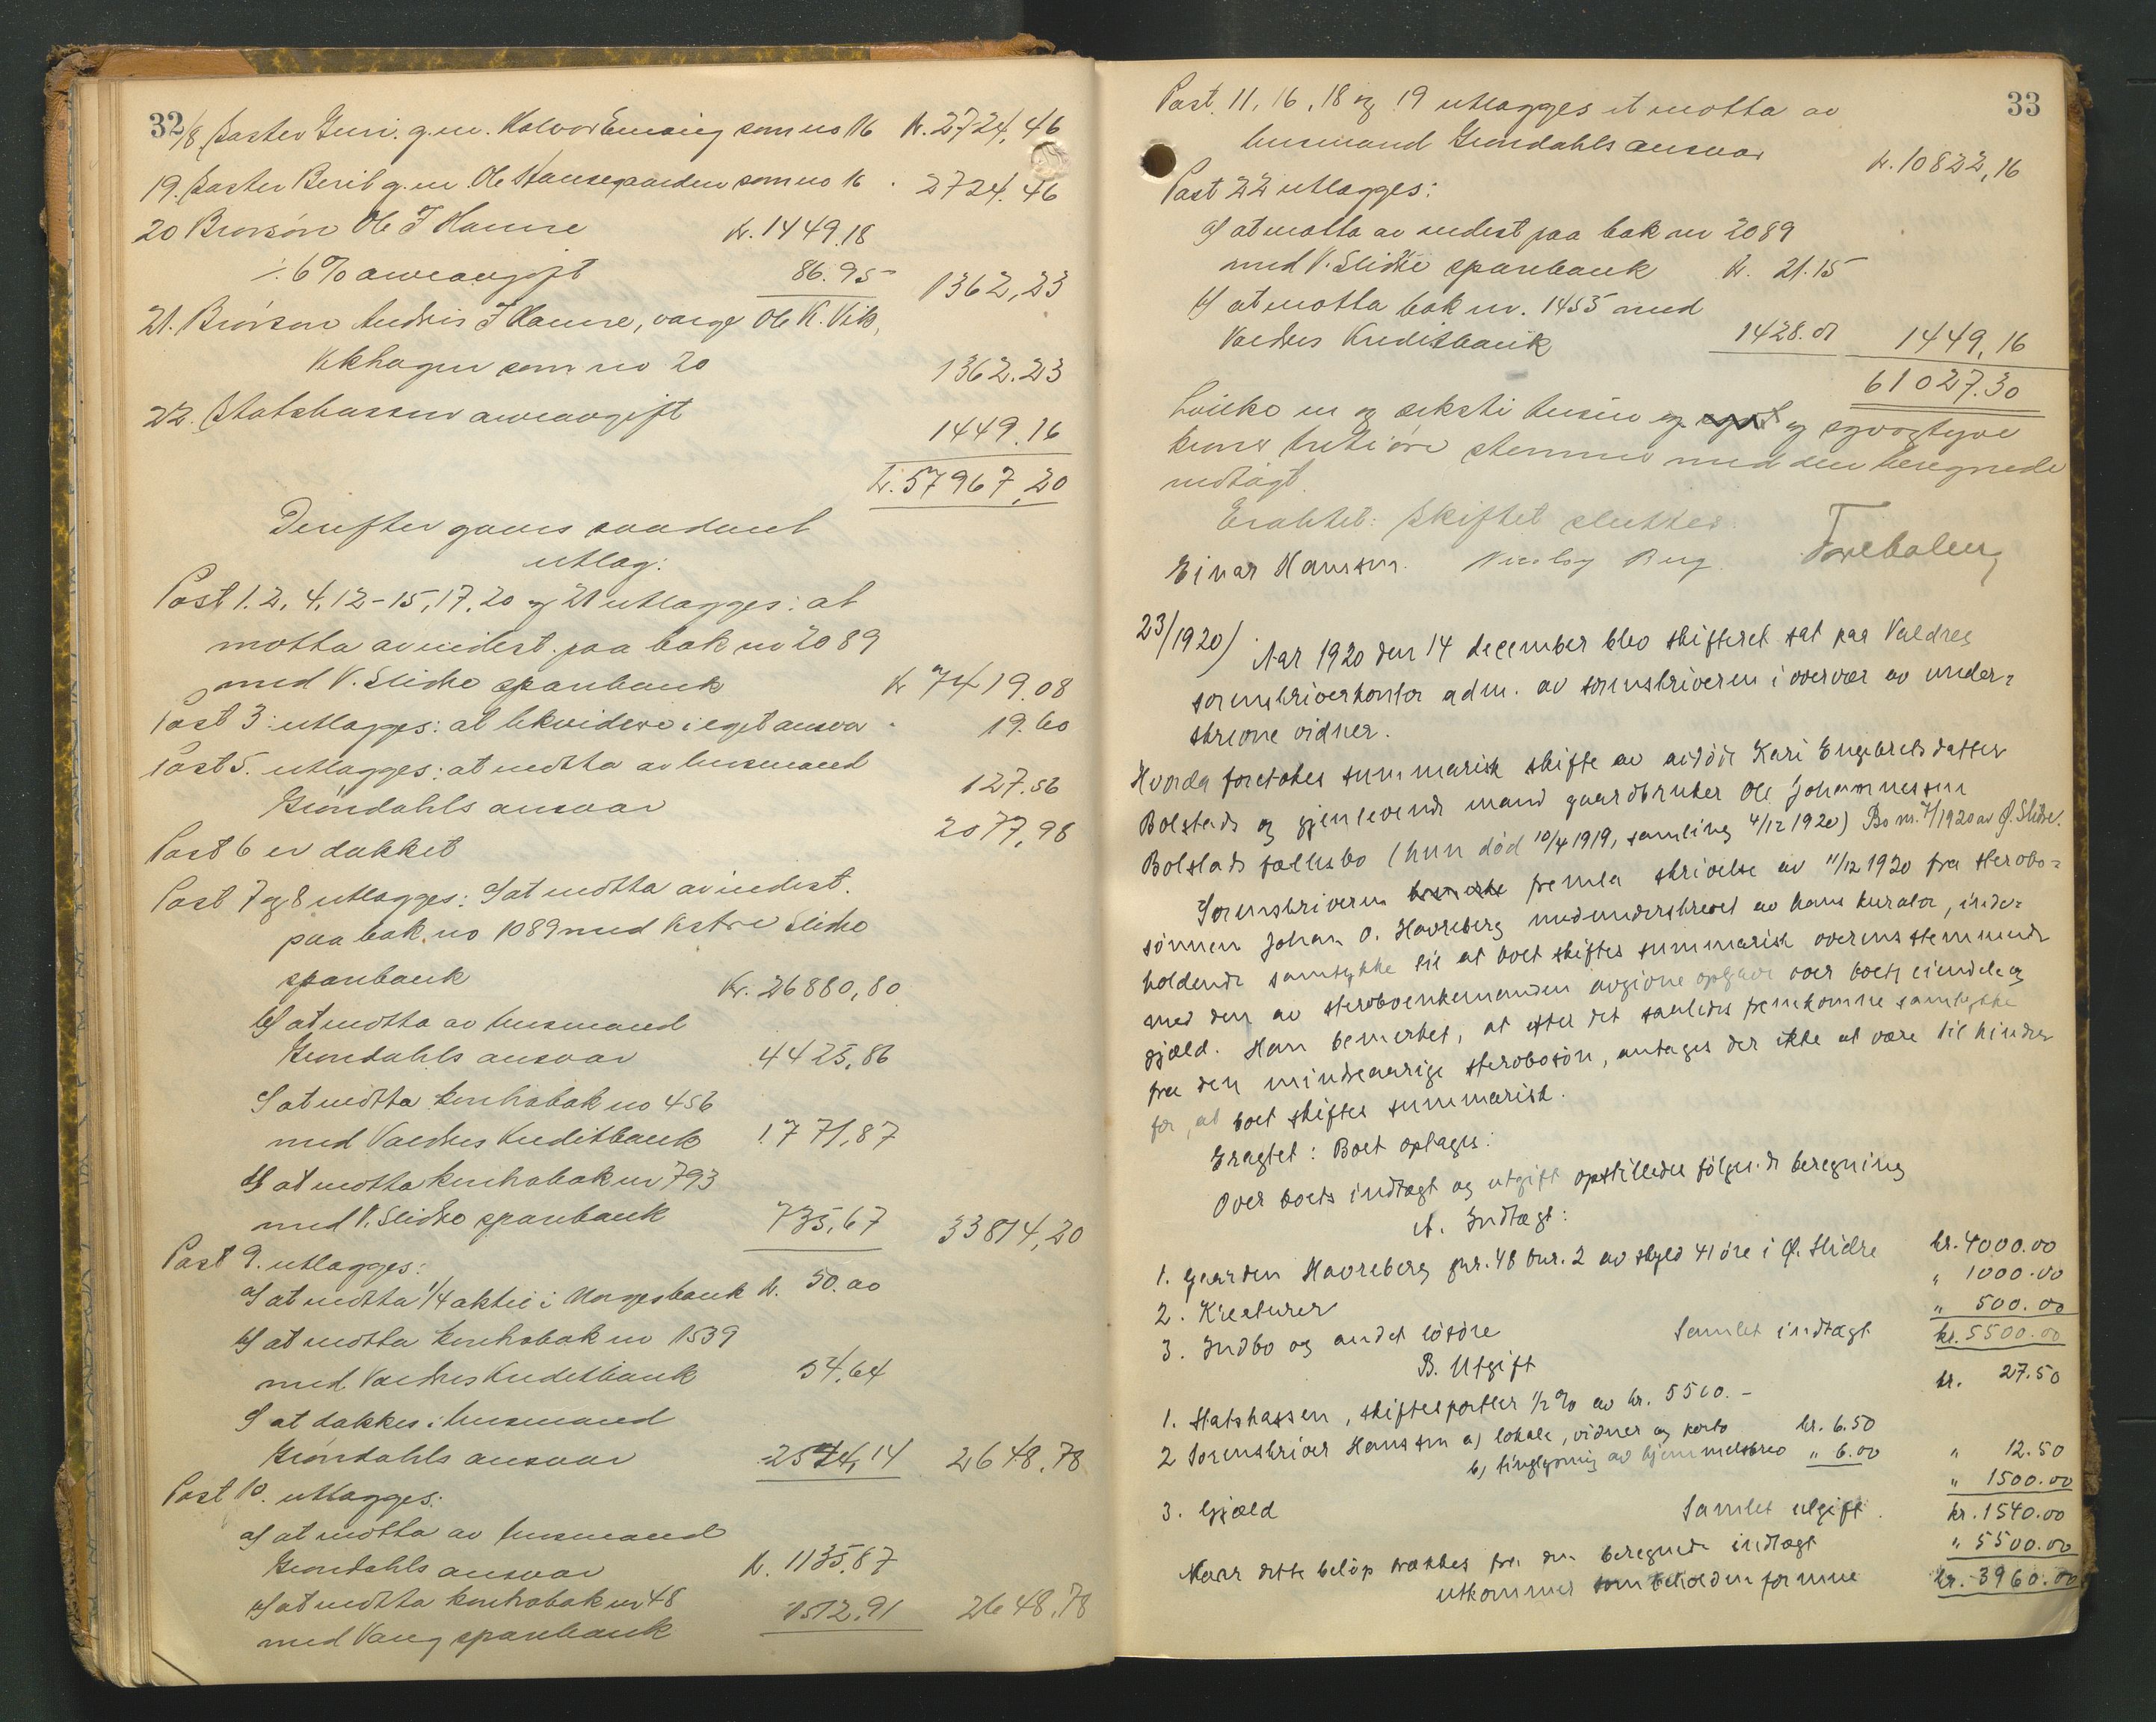 32
18. Søster Guri g.m. Halvor som no 16 kr. 2724,46
19. Søster Berit g.m. Ole Hansegaarden som no 16 " 2724.46
20 Brorsøn Ole T Hamre kr. 1449.18
÷ 6% arveavgift 86.95 1362,23
21. Brorsøn Andris T Hamre, verge Ole K. Vik,
som no 20 1362.23
22. Statskassen arveavgift 1449.16
kr. 57967,20
Derefter gaves saadant
utlæg:
Post 1. 2, 4, 12-15, 17, 20 og 21 utlægges: at
motta av indest. paa bok no 2089
med V. Slidre sparebank kr 7419.08
Post 3 utlægges: at likvidere i eget ansvar " 19.60
Post 5. utlægges: at motta av lensmand
Grøndahls ansvar 127.56
Post 6 er dækket 2077,98
Post 7 og 8 utlægges: a) at motta av indest.
paa bok no 1089 med Vestre Slidre
sparebank kr. 26880,80
b) at motta av lensmand
Grøndahls ansvar 4425,86
c) at motta kontrabok no 456
med Valdres Kreditbank 1771,87
d) at motta kontrabok nr 793
med V. Slidre sparebank 735,67 33814,20
Post 9. utlægges:
a) at motta 1/4 aktie i Norgesbank kr. 50.00
b) at motta kontrabok no 1539
med Valdres Kreditbank 54,64
c) at dækkes i lensmand
Grøndahls ansvar 2544,14 2648,78
Post 10. utlægges:
a) at motta av lensmand
Grøndahls ansvar kr. 1135,87
b) at motta kontrabok nr 48
med Vang sparebank 1512,91 2648,78
33
Post 11, 16, 18 og 19 utlægges at motta av
lensmand Grøndahls ansvar kr. 10822,16
Post 22 utlægges:
a) at motta av indest paa bok nr 2089
med V. Slidre sparebank kr. 21.15
b) at motta bok nr. 1455 med
Valdres Kreditbank 1428.01 1449,16
61027.30
hvilke en og seksti tusen og og syvogtyve
kroner tretti øre stemmer med den beregnede
indtægt.
Eragtet: Skiftet sluttes.
Einar Hansson. Nicolay Berg.
23/1920) Aar 1920 den 14 december blev skifteret sat paa Valdres
sorenskriverkontor adm. av sorenskriveren i overvær av under-
skrevne vidner.
Hvorda foretokes summarisk skifte av avdøde Kari Engebretsdatter
Bolstads og gjenlevende mand gaardbruker Ole Johannessen
Bolstads fællesbo (hun død 10/4 1919, samling 4/12 1920) Bo nr. 7/1920 av Ø. Slidre.
Sorenskriveren fremla skrivelse av 11/12 1920 fra sterbo-
sønnen Johan O. Havreberg medunderskrevet av hans kurator, inde-
holdende samtykke til at boet skiftes summarisk overensstemmende
med den av sterboenkemanden avgivne opgave over boets eiendele og
gjæld. Han bemerket, at efter det saaledes fremkomne samtykke
fra den mindreaarige sterbosøn, antages der ikke at være til hinder
for, at boet skiftes summarisk.
Eragtet: Boet optages:
Over boets indtægt og utgift opstilledes følgende beregning
A. Indtægt:
1. Gaarden Havreberg gnr. 48 bnr. 2 av skyld 41 øre i Ø. Slidre kr. 4000.00
2. Kreaturer " 1000.00
3. Indbo og andet løsøre " 500.00
Samlet indtægt kr. 5500.00
B. Utgift
1. Statskassen, skiftesportler 1/2 % av kr. 5500.- kr. 27.50
2 Sorenskriver Hansson a) lokale, vidner og porto kr. 6.50
b) tinglysning av hjemmelsbrev " 6.00 " 12.50
3. Gjæld " 1500.00
Samlet utgift kr. 1540.00
Naar dette beløp trækkes fra den beregnede indtægt " 5500.00
utkommer som beholden formue kr. 3960.00